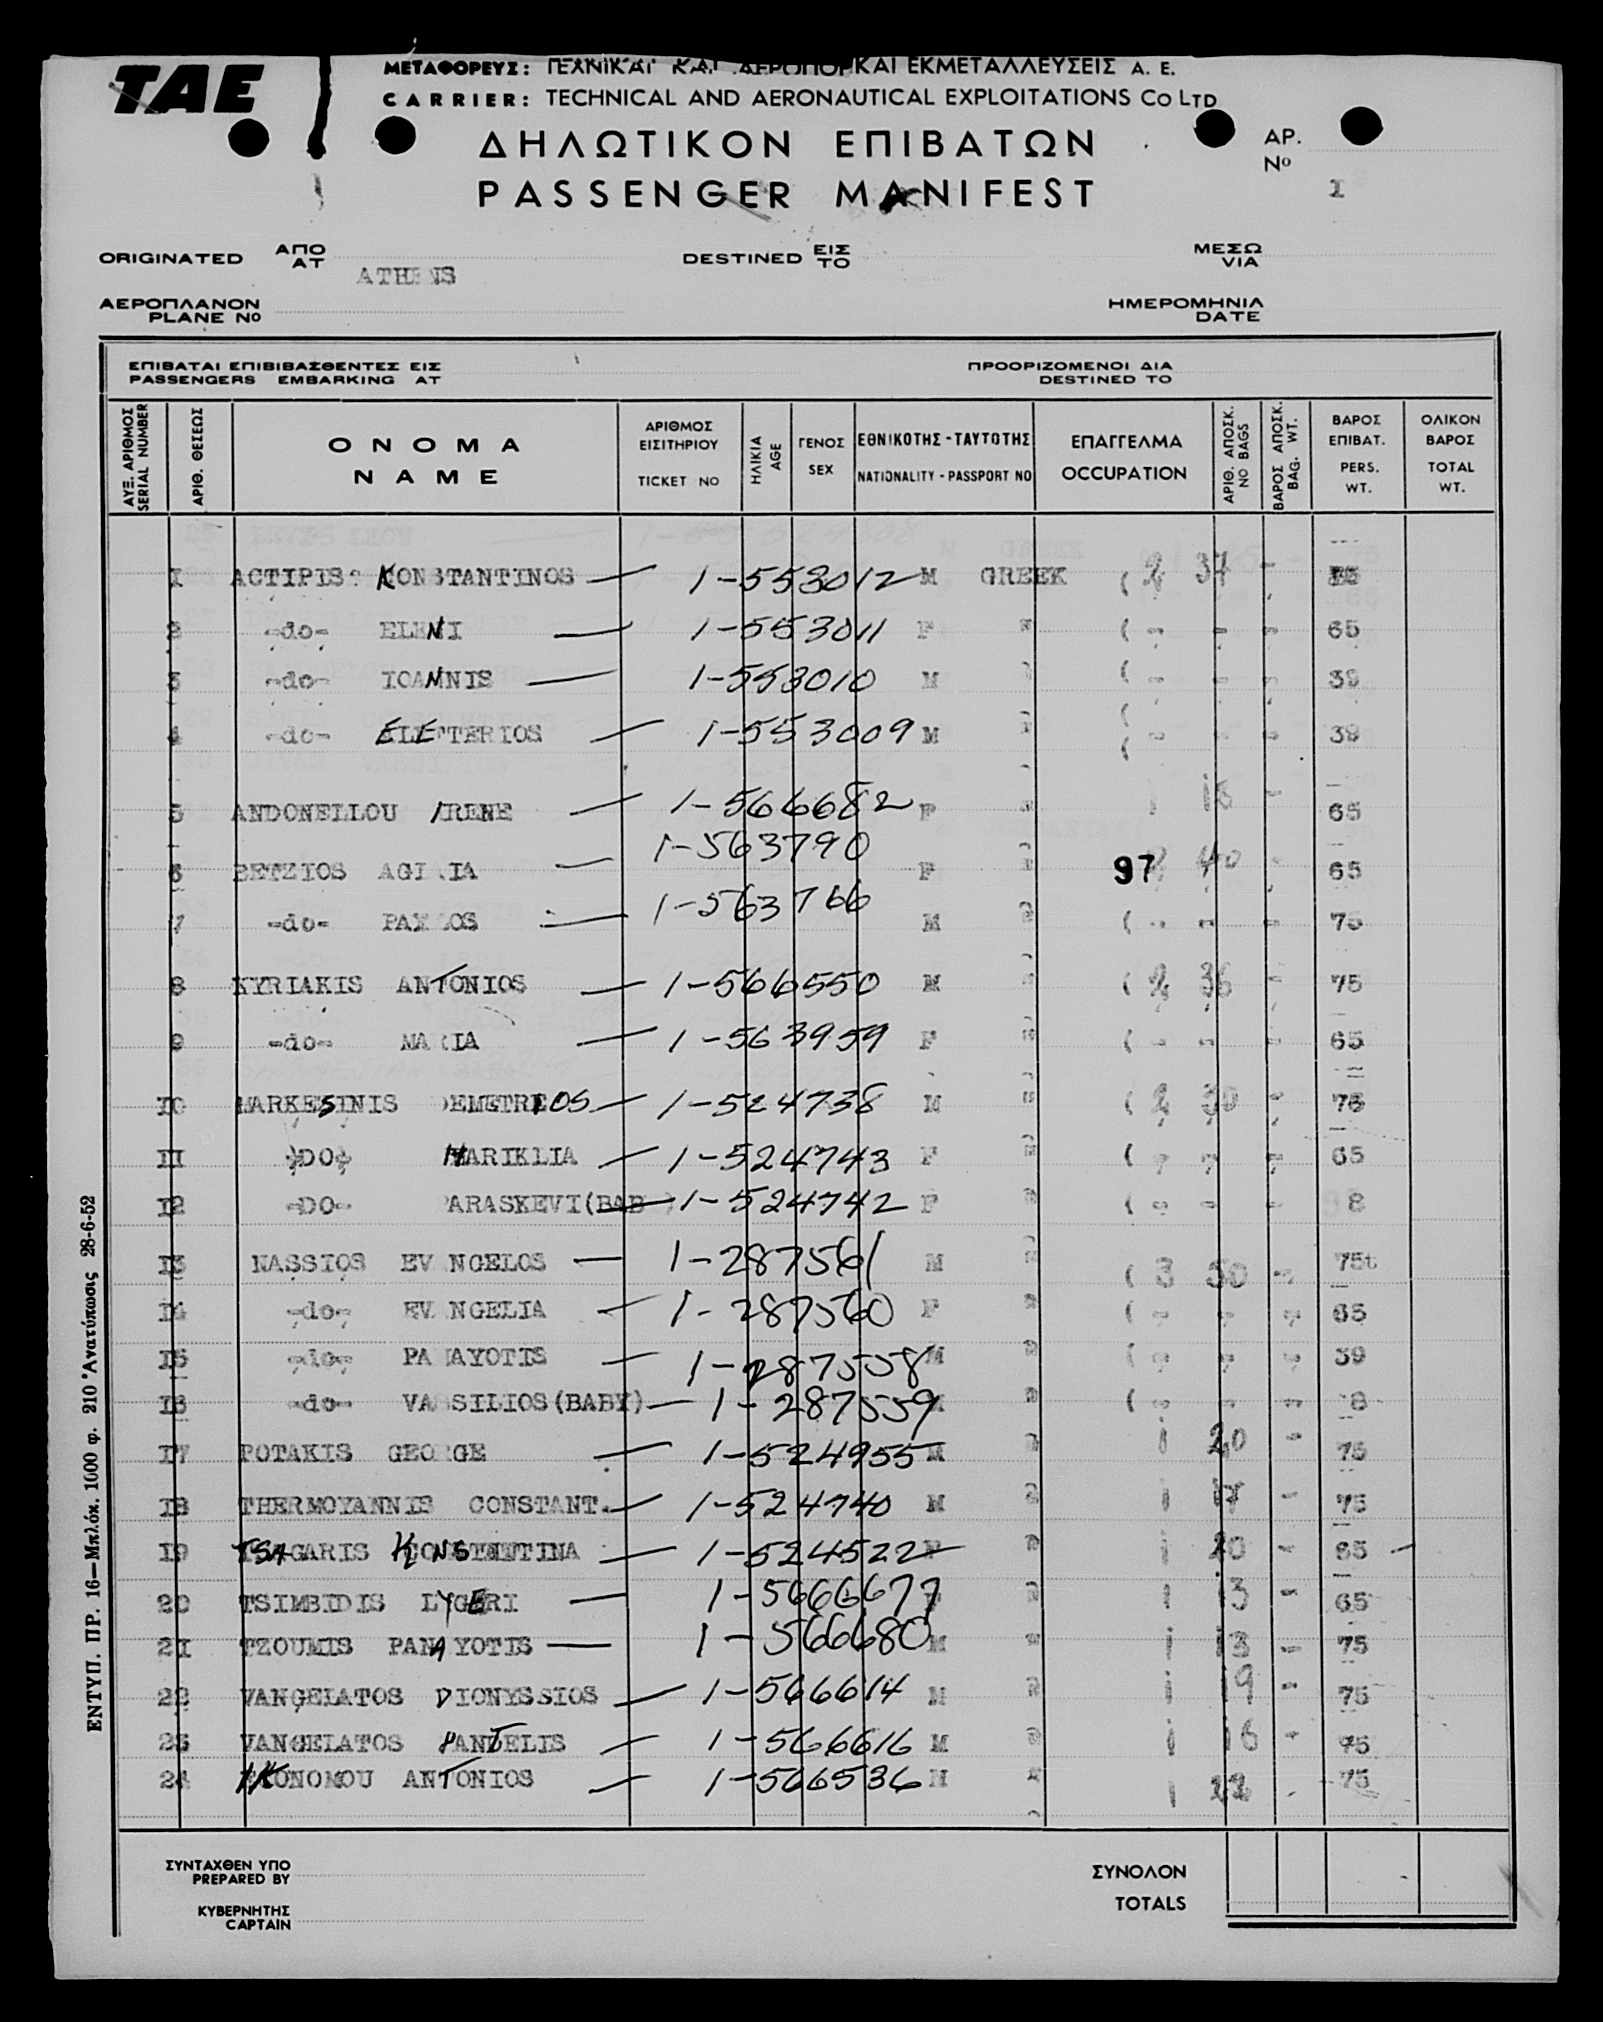 TAE
ΜΕΤΑΦΟΡΕΥΣ: ΤΕΧΝΙΚΑΙ ΚΑΙ ΑΕΡΟΠΟΡΙΚΑΙ ΕΚΜΕΤΑΛΛΕΥΣΕΙΣ Α. Ε.
CARRIER: TECHNICAL AND AERONAUTICAL EXPLOITATIONS Co LTD
ΔΗΛΩΤΙΚΟΝ ΕΠΙΒΑΤΩΝ
PASSENGER MANIFEST
ΑΡ.
Nº
I
ORIGINATED ΑΠΟ AT ATHENS
DESTINED ΕΙΣ TO
ΜΕΣΩ VIA
ΑΕΡΟΠΛΑΝΟΝ
PLANE Nº
ΗΜΕΡΟΜΗΝΙΑ
DATE
ΕΠΙΒΑΤΑΙ ΕΠΙΒΙΒΑΣΘΕΝΤΕΣ ΕΙΣ
PASSENGERS EMBARKING AT
ΠΡΟΟΡΙΖΟΜΕΝΟΙ ΔΙΑ
DESTINED TO
ΑΥΞ. ΑΡΙΘΜΟΣ SERIAL NUMBER
ΑΡΙΘ. ΘΕΣΕΩΣ
ΟΝΟΜΑ NAME
ΑΡΙΘΜΟΣ ΕΙΣΙΤΗΡΙΟΥ TICKET NO
ΗΛΙΚΙΑ AGE
ΓΕΝΟΣ SEX
ΕΘΝΙΚΟΤΗΣ - ΤΑΥΤΟΤΗΣ NATIONALITY - PASSPORT NO
ΕΠΑΓΓΕΛΜΑ OCCUPATION
ΑΡΙΘ. ΑΠΟΣΚ. NO BAGS
ΒΑΡΟΣ ΑΠΟΣΚ. BAG. WT.
ΒΑΡΟΣ ΕΠΙΒΑΤ. PERS. WT.
ΟΛΙΚΟΝ ΒΑΡΟΣ TOTAL WT.
1 ACTIPIS KONSTANTINOS — 1-553012 M GREEK ( 2 37 -
2 -do- ELENI — 1-553011 F " ( - - - 65
3 -do- IOANNIS — 1-553010 M " ( - - - 39
4 -do- ELEFTERIOS — 1-553009 M " ( - - - 39
5 ANDONELLOU IRENE — 1-566682 F " 1 18 - 65
6 BETZIOS — 1-563790 F " 97 40 - 65
7 -do- — 1-563766 M " ( - - - 75
8 KYRIAKIS ANTONIOS — 1-566550 M " ( 2 36 - 75
9 -do- MARIA — 1-563959 F " ( - - - 65
10 MARKESINIS DEMETRIOS — 1-524738 M " ( 2 30 - 75
11 -DO- HARIKLIA — 1-524743 F " ( - - - 65
12 -DO- PARASKEVI(BAB ) 1-524742 F " ( - - - 8
13 NASSIOS EVANGELOS — 1-287561 M " ( 3 50 - 75
14 -do- EVANGELIA — 1-287560 F " ( - - - 65
15 -do- PANAYOTIS — 1-287558 M " ( - - - 39
16 -do- VASSILIOS(BABY) — 1-287559 M " ( - - - 8
17 POTAKIS GEORGE — 1-524955 M " 1 20 - 75
18 THERMOYANNIS CONSTANT. — 1-524740 M " 1 17 - 75
19 TSAGARIS KONSTANTINA — 1-524522 F " 1 20 - 65
20 TSIMBIDIS LYGERI — 1-566677 F " 1 13 - 65
21 TZOUMIS PANAYOTIS — 1-566680 M " 1 13 - 75
22 VANGELATOS DIONYSSIOS — 1-566614 M " 1 19 - 75
23 VANGELATOS PANTELIS — 1-566616 M " 1 16 - 75
24 IKONOMOU ANTONIOS — 1-566536 M " 1 22 - 75
ΣΥΝΤΑΧΘΕΝ ΥΠΟ
PREPARED BY
ΚΥΒΕΡΝΗΤΗΣ
CAPTAIN
ΣΥΝΟΛΟΝ
TOTALS
ΕΝΤΥΠ. ΠΡ. 16—Μπλόκ. 1000 φ. 210 Ἀνατύπωσις 28-6-52